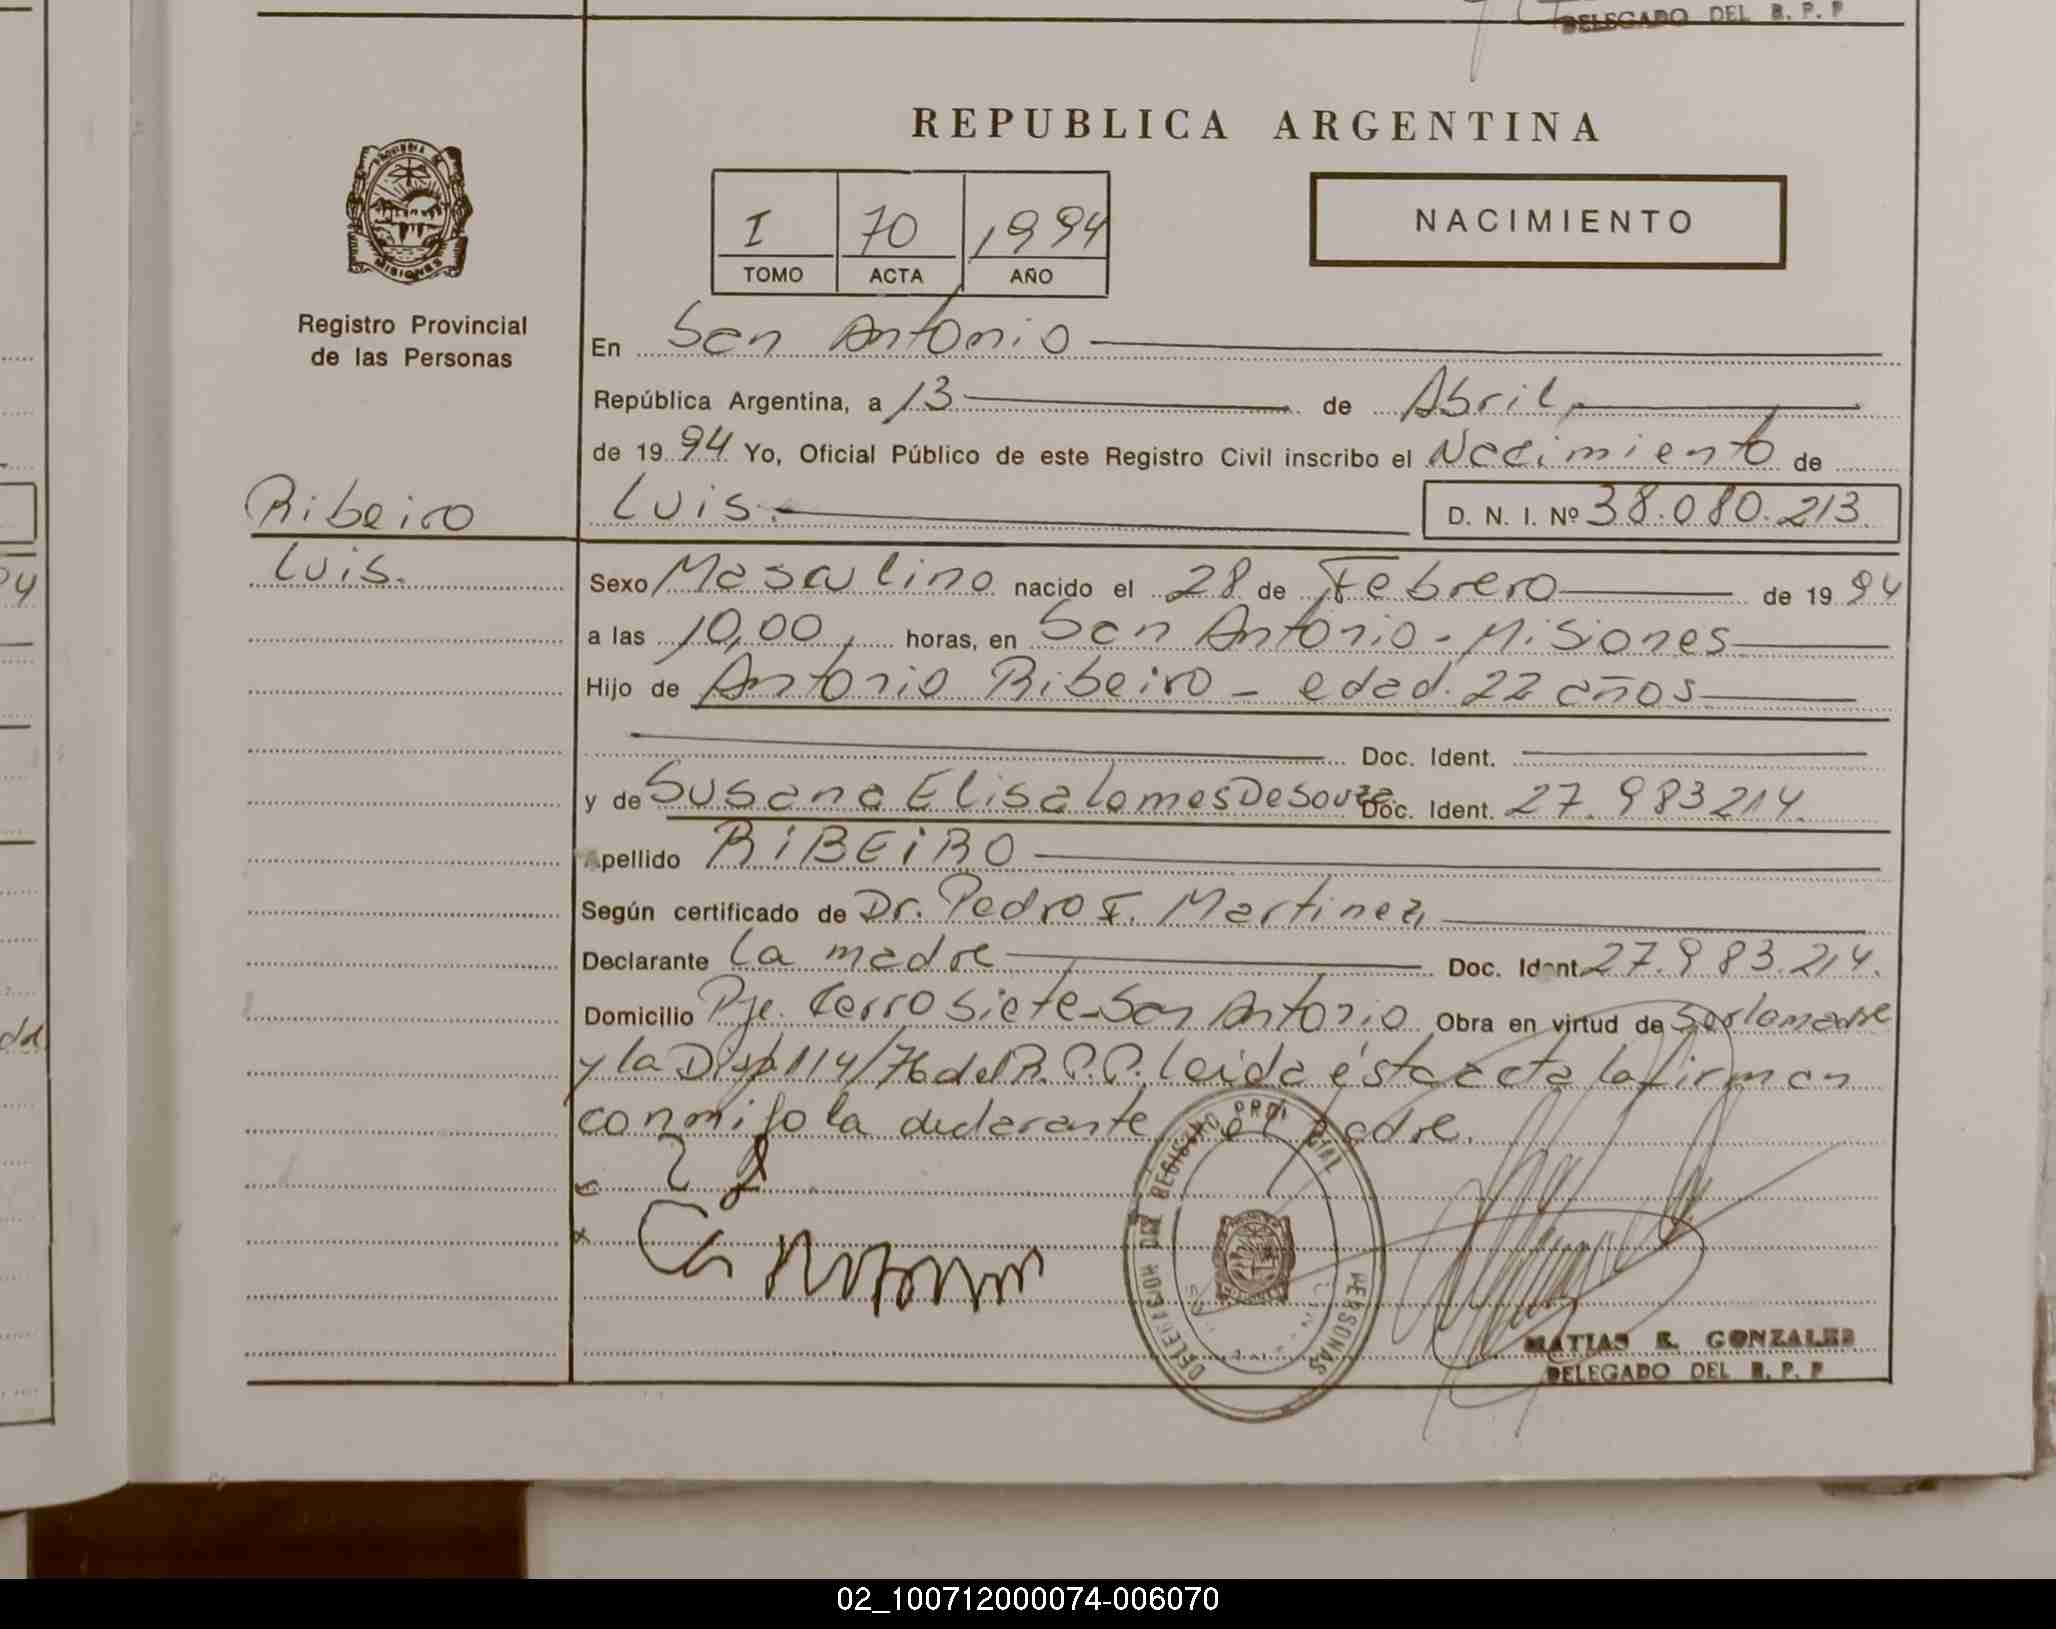 DELEGADO DEL R. P. P
REPUBLICA ARGENTINA
PROVINCIA DE
MISIONES
Registro Provincial
de las Personas
I 70 1994
TOMO ACTA AÑO
NACIMIENTO
En San Antonio
República Argentina, a 13 de Abril
de 1994 Yo, Oficial Público de este Registro Civil inscribo el Nacimiento de
Ribeiro Luis. D. N. I. Nº 38.080.213.
Luis. Sexo Masculino nacido el 28 de Febrero de 1994
a las 10,00 horas, en San Antonio - Misiones
Hijo de Antonio Ribeiro - edad. 22 años
Doc. Ident.
y de Susana Elisa Lemes De Souza Doc. Ident. 27.983214.
Apellido RiBEiRO
Según certificado de Dr. Pedro F. Martinez
Declarante la madre Doc. Ident 27.983.214.
Domicilio Pje. Cerro Siete - San Antonio Obra en virtud de Ser la madre
y la Disp 114/76 del R.P.P. leida ésta acta la firman
conmigo la declarante el padre.
DELEGADO DEL REGISTRO PERSONAS
MATIAS E. GONZALES
DELEGADO DEL R. P. P
02_100712000074-006070